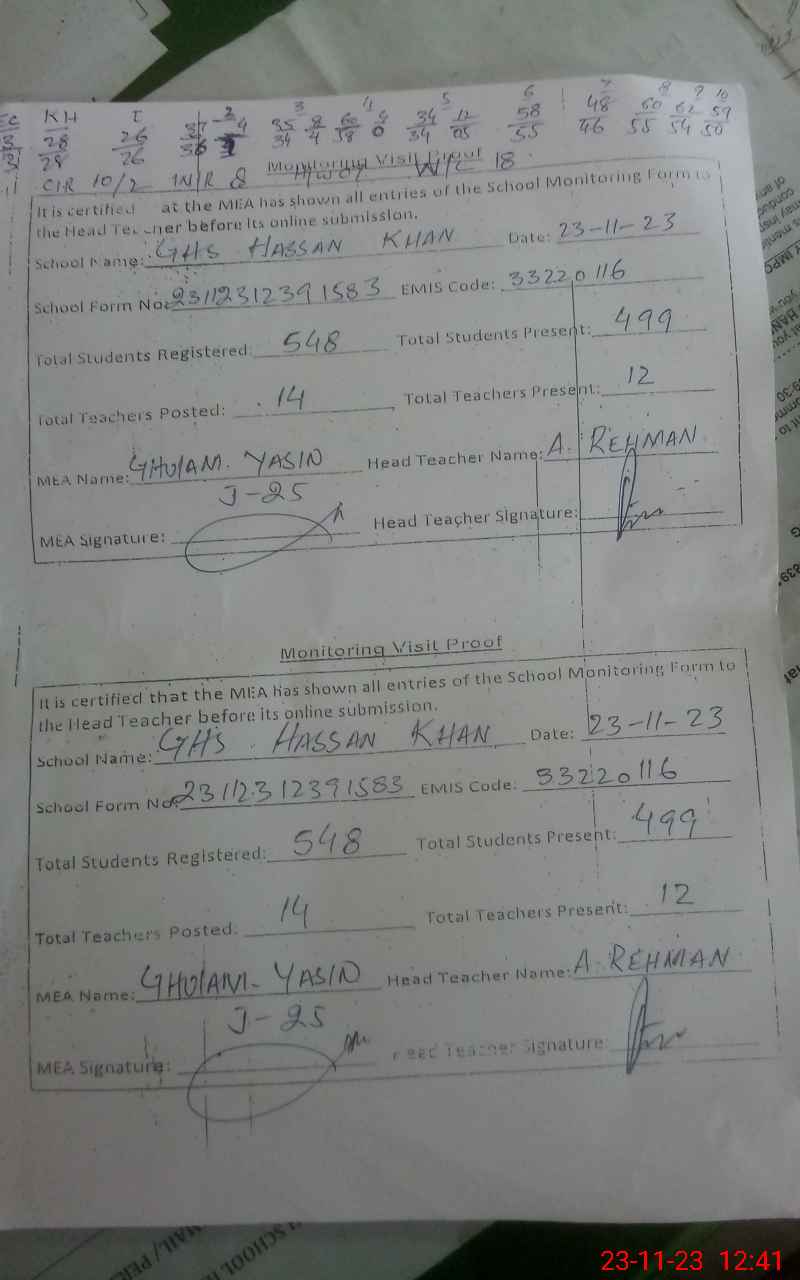 KH I 2 3 4 5 6 7 8 9 10
28 26 35 8 60 34 12 58 48 60 62 59
28 26 34 4 58 0 34 05 55 46 55 54 50
CIR 10/2 INR 8 W/C 18
Monitoring Visit Proof
It is certified at the MEA has shown all entries of the School Monitoring Form to
the Head Teacher before its online submission.
School Name: GHS HASSAN KHAN Date: 23-11-23
School Form No: 2311231239 1583 EMIS Code: 33220116
Total Students Registered: 548 Total Students Present: 499
Total Teachers Posted: 14 Total Teachers Present: 12
MEA Name: GHULAM. YASIN Head Teacher Name: A. REHMAN
J-25
MEA Signature: Head Teacher Signature:
Monitoring Visit Proof
It is certified that the MEA has shown all entries of the School Monitoring Form to
the Head Teacher before its online submission.
School Name: GHS. HASSAN KHAN Date: 23-11-23
School Form No: 23112312391583 EMIS Code: 33220116
Total Students Registered: 548 Total Students Present: 499
Total Teachers Posted: 14 Total Teachers Present: 12
MEA Name: GHULAM- YASIN Head Teacher Name: A. REHMAN
J-25
MEA Signature: Head Teacher Signature:
23-11-23 12:41